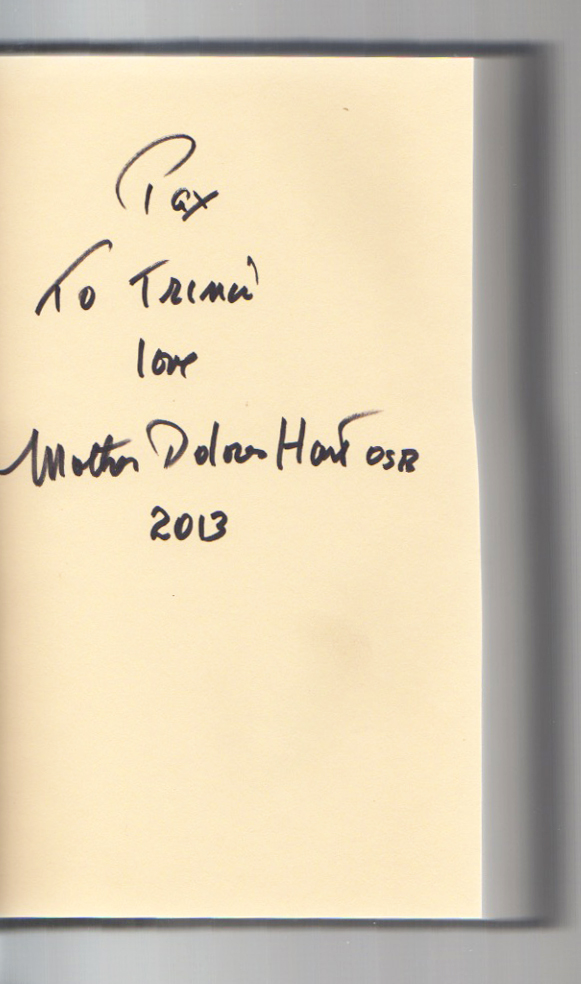 Pax
To
love
Mother Dolores Hart OSB
2013